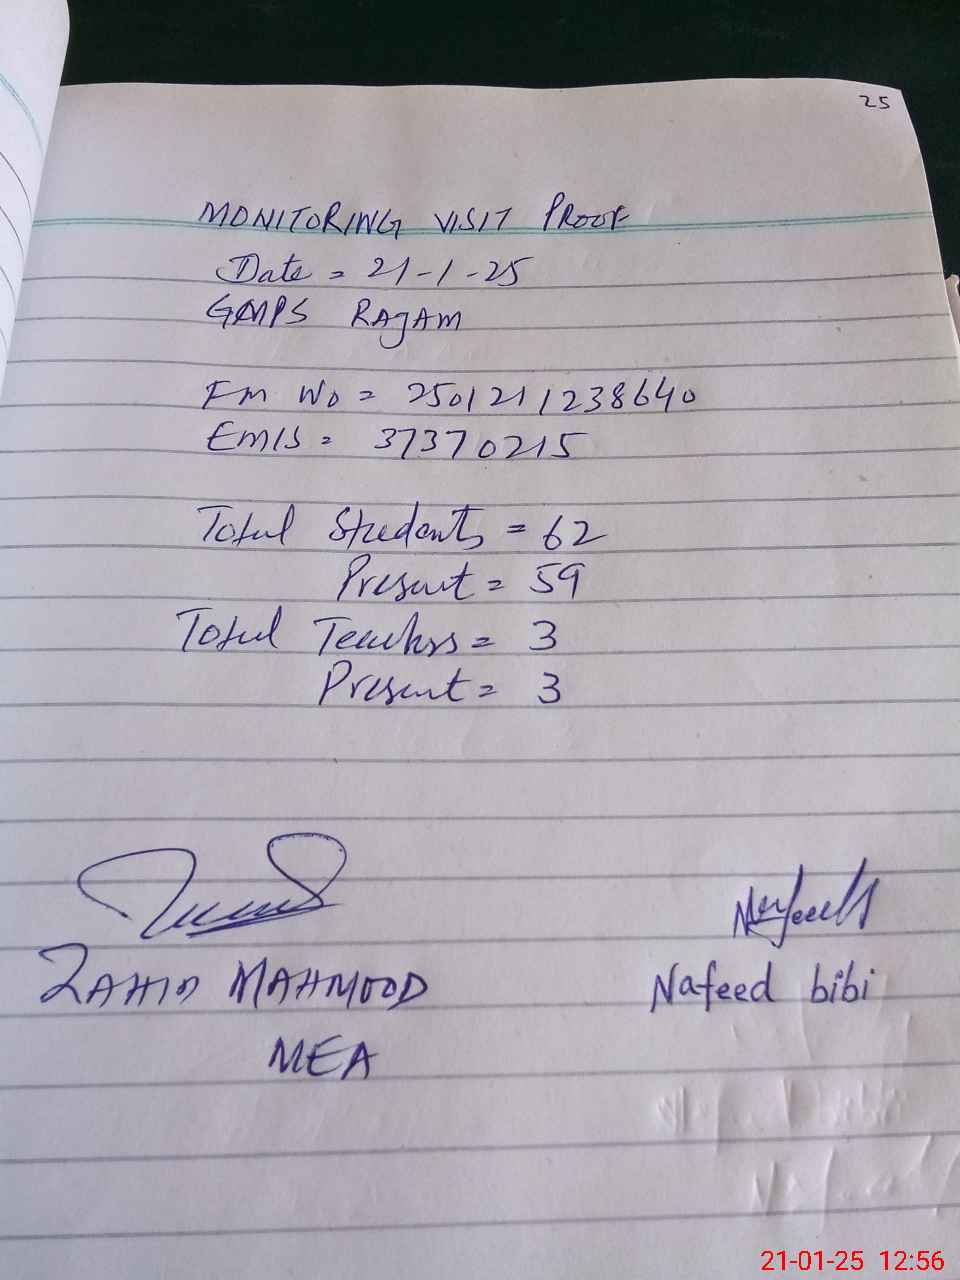 25
MONITORING VISIT PROOF
Date = 21-1-25
GMPS RAJAM
FM No = 2501211238640
EMIS = 37370215
Total Students = 62
Present = 59
Total Teachers = 3
Present = 3
ZAHID MAHMOOD
Nafeed bibi
MEA
21-01-25 12:56